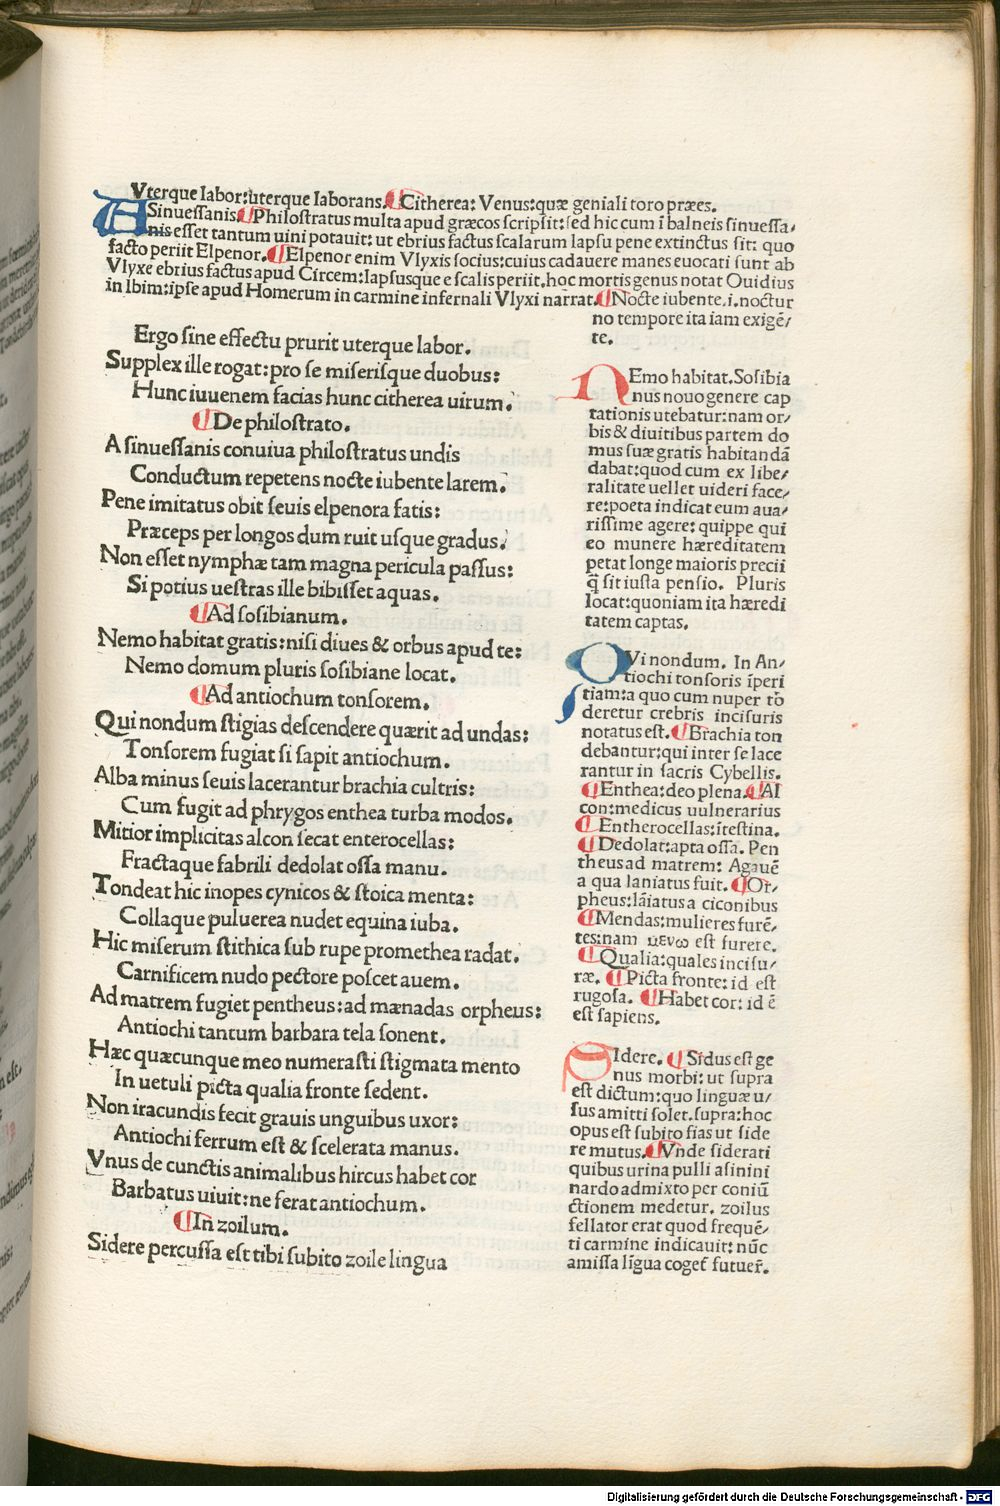 Vterque labor:uterque laborans. ¶Citherea: Venus:quæ geniali toro præes.
A Sinueſſanis. ¶Philoſtratus multa apud græcos ſcripſit:ſed hic cum i balneis ſinueſſa/
nis eſſet tantum uini potauit: ut ebrius factus ſcalarum lapſu pene extinctus ſit: quo
facto periit Elpenor. ¶Elpenor enim Vlyxis ſocius:cuius cadauere manes euocati ſunt ab
Vlyxe ebrius factus apud Circem:lapſusque e ſcalis periit.hoc mortis genus notat Ouidius
in Ibim:ipſe apud Homerum in carmine infernali Vlyxi narrat. ¶Nocte iubente.i.noctur
no tempore ita iam exigē/
te.
Ergo ſine effectu prurit uterque labor.
Supplex ille rogat:pro ſe miſerisque duobus:
Hunc iuuenem facias hunc citherea uirum.
¶De philoſtrato.
A ſinueſſanis conuiua philoſtratus undis
Conductum repetens nocte iubente larem.
Pene imitatus obit ſeuis elpenora fatis:
Præceps per longos dum ruit uſque gradus.
Non eſſet nymphæ tam magna pericula paſſus:
Si potius ueſtras ille bibiſſet aquas.
¶Ad ſoſibianum.
Nemo habitat gratis:niſi diues & orbus apud te:
Nemo domum pluris ſoſibiane locat.
¶Ad antiochum tonſorem.
Qui nondum ſtigias deſcendere quærit ad undas:
Tonſorem fugiat ſi ſapit antiochum.
Alba minus ſeuis lacerantur brachia cultris:
Cum fugit ad phrygos enthea turba modos.
Mitior implicitas alcon ſecat enterocellas:
Fractaque fabrili dedolat oſſa manu.
Tondeat hic inopes cynicos & ſtoica menta:
Collaque puluerea nudet equina iuba.
Hic miſerum ſtithica ſub rupe promethea radat.
Carnificem nudo pectore poſcet auem.
Ad matrem fugiet pentheus:ad mænadas orpheus:
Antiochi tantum barbara tela ſonent.
Hæc quæcunque meo numeraſti ſtigmata mento
In uetuli picta qualia fronte ſedent.
Non iracundis fecit grauis unguibus uxor:
Antiochi ferrum eſt & ſcelerata manus.
Vnus de cunctis animalibus hircus habet cor
Barbatus uiuit:ne ferat antiochum.
¶In zoilum.
Sidere percuſſa eſt tibi ſubito zoile lingua
NEmo habitat.Soſibia
nus nouo genere cap
tationis utebatur:nam or/
bis & diuitibus partem do
mus ſuæ gratis habitandā
dabat:quod cum ex libe/
ralitate uellet uideri face/
re:poeta indicat eum aua/
riſſime agere: quippe qui
eo munere hæreditatem
petat longe maioris precii
q̄ ſit iuſta penſio. Pluris
locat:quoniam ita hæredi
tatem captas.
QVi nondum. In An/
tiochi tonſoris īperi
tiam:a quo cum nuper tō
deretur crebris inciſuris
notatus eſt. ¶Brachia ton
debantur:qui inter ſe lace
rantur in ſacris Cybellis.
¶Enthea:deo plena. ¶Al
con:medicus uulnerarius
¶Entherocellas:īteſtina.
¶Dedolat:apta oſſa. Pen
theus ad matrem: Agauē
a qua laniatus fuit. ¶Or/
pheus:lāiatus a ciconibus
¶Mendas:mulieres furē/
tes:nam μενω eſt furere.
¶Qualia:quales inciſu/
ræ. ¶Picta fronte: id eſt
rugoſa. ¶Habet cor: id ē
eſt ſapiens.
SIdere. ¶Sidus eſt ge
nus morbi: ut ſupra
eſt dictum:quo linguæ u/
ſus amitti ſolet.ſupra:hoc
opus eſt ſubito fias ut ſide
re mutus. ¶Vnde ſiderati
quibus urina pulli aſinini
nardo admixto per coniū
ctionem medetur. zoilus
fellator erat quod frequē/
ti carmine indicauit: nūc
amiſſa līgua coget̄ futuer̄.
Digitalisierung gefördert durch die Deutsche Forschungsgemeinschaft - DFG